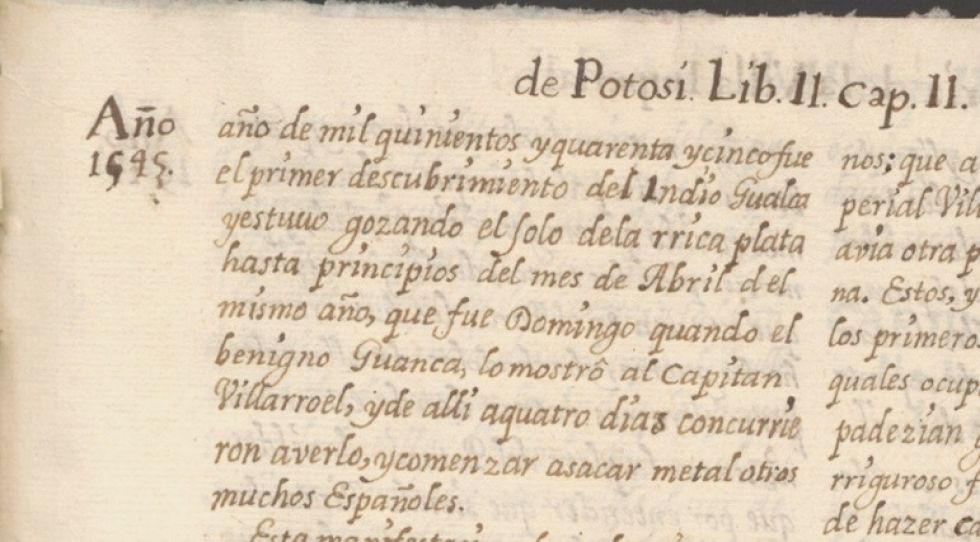 de Potosi. Lib. II. Cap. II.
Año
1545.
año de mil quinientos y quarenta y cinco fue
el primer descubrimiento del Indio Gualca
y estuuo gozando el solo de la rrica plata
hasta principios del mes de Abril del
mismo año, que fue Domingo quando el
benigno Guanca, lo mostrô al Capitan
Villarroel, y de alli a quatro dias concurrie
ron a verlo, y comenzar a sacar metal otros
muchos Españoles.
nos; que a
perial Vil
avia otra p
na. Estos, y
los primeros
quales ocup
padezian
rriguroso f
de hazer ca